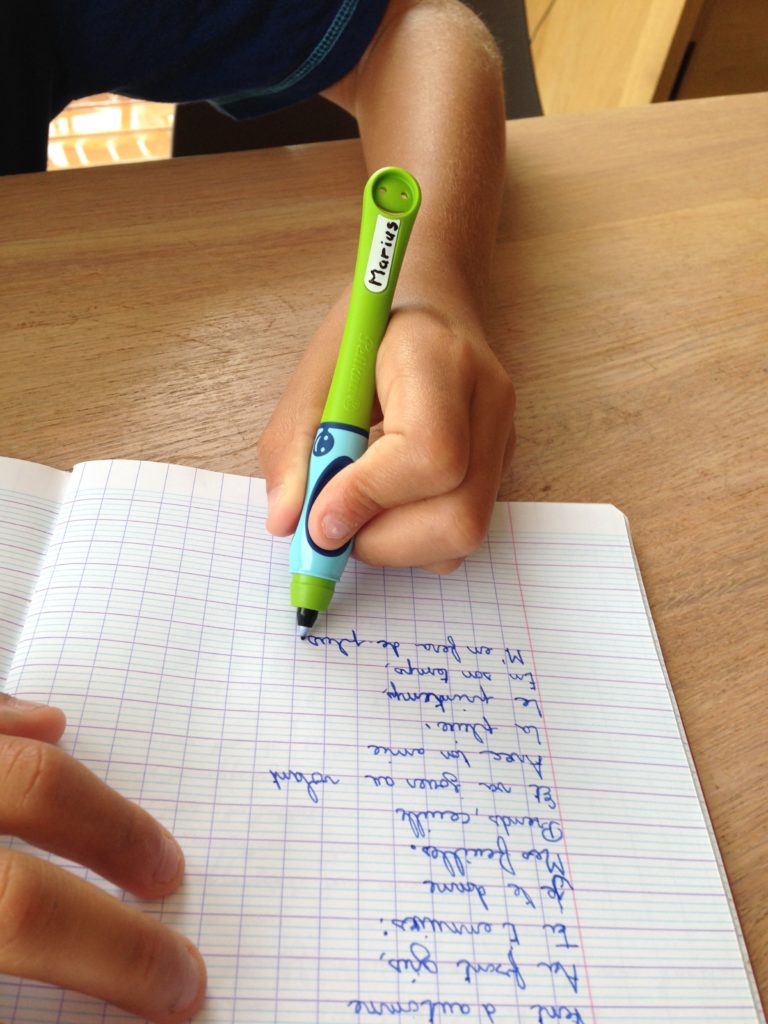 Marius
Pelikan
Vent d automne
Au front gris,
Tu t ennuies.
Je te donne
Mes feuilles.
Prends, ceuille
Et va jouer au volant
Avec ton amie
La pluie.
Le printemps,
En son temps,
M' en fera de plus